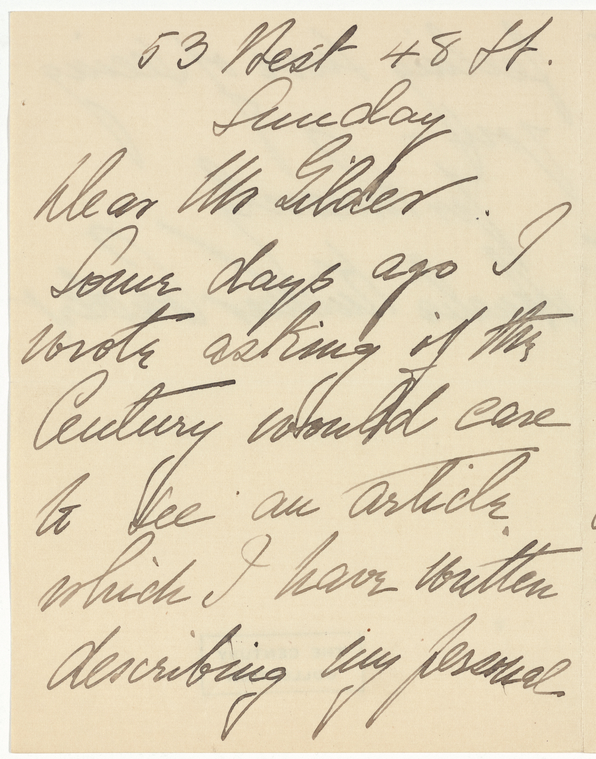 53 West 48 St.
Sunday
Dear Mr Gilder.
Some days ago I
wrote asking if the
Century would care
to see an article
which I have written
describing my personal